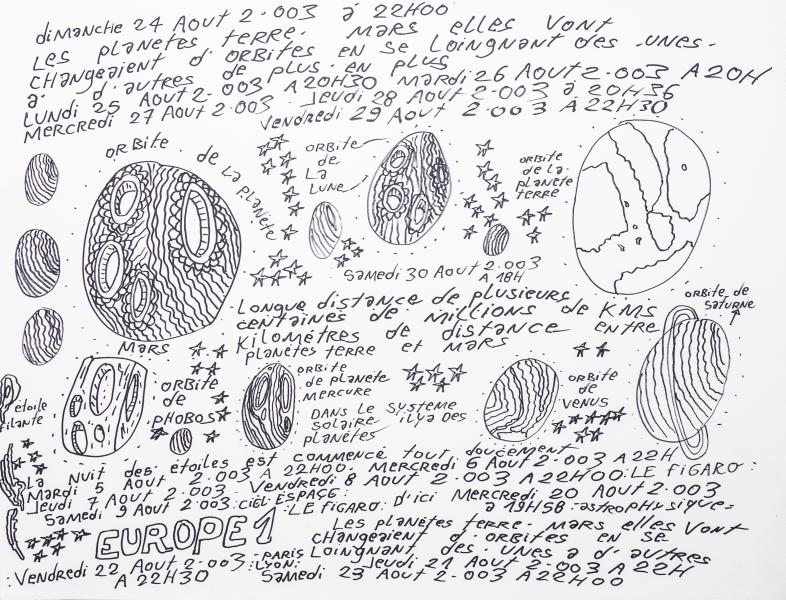 dimanche 24 Aout 2.003 à 22H00
Les planètes terre. mars elles vont
changeaient d'orbites en se loingnant des .unes.
à d'autres de plus en plus
LUNDi 25 Aout 2.003 A 20H30 mardi 26 Aout 2.003 A 20H
mercredi 27 Aout 2.003 Jeudi 28 Aout 2.003 à 20H36
vendredi 29 Aout 2.003 A 22H30
orbite de la planète
orbite
de
la
lune
orbite
de la
planète
terre
samedi 30 Aout 2.003
A 18H
Longue distance de plusieurs
centaines de millions de KMS
Kilométres de distance entre
planètes terre et mars
orbite de
saturne
mars
étoile
filante
orbite
de
phobos
orbite
de planete
mercure
dans le systeme
solaire ilya des
planètes
orbite
de
venus
La Nuit des étoiles est commencé tout doucement
mardi 5 Aout 2.003 A 22H00. mercredi 6 Aout 2.003 A 22H
Jeudi 7 Aout 2.003 vendredi 8 Aout 2.003 A 22H00:LE FIGARO:
samedi 9 Aout 2.003:ciel ESPACE:
:LE FIGARO: d'ici mercredi 20 Aout 2.003
à 19H58:astrophysique:
EUROPE 1
Les planètes terre. mars elles vont
changeaient d'orbites en se
Loingnant des .unes a d'autres
:vendredi 22 Aout 2.003:PARIS
:LYON:
Jeudi 21 Aout 2.003 A 22H
A 22H30
samedi 23 Aout 2.003 A 22H00